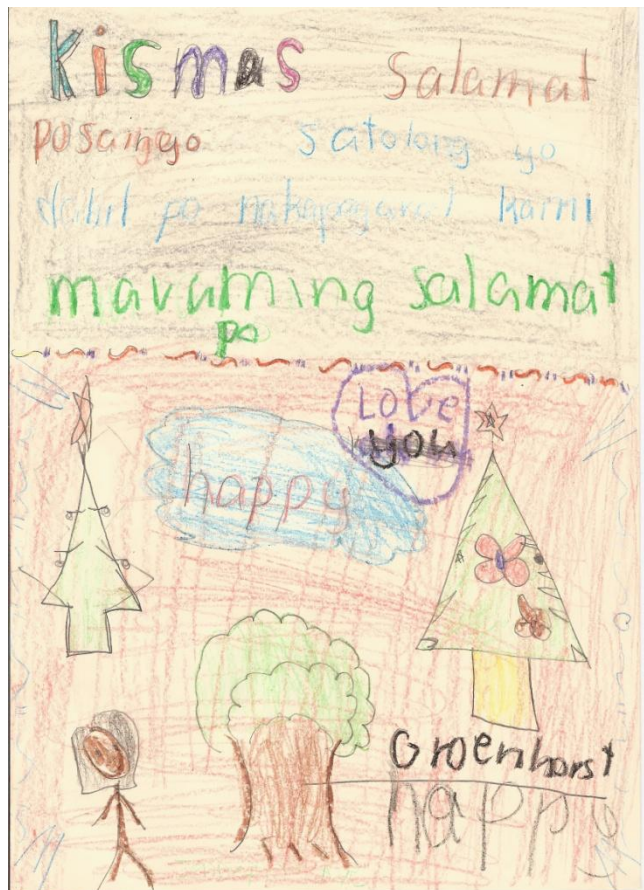 Kismas Salamat
po sainyo satolong yo
dahil po nakapagaral kami
maraming salamat
po
Love
you
happy
Groenhorst
happy